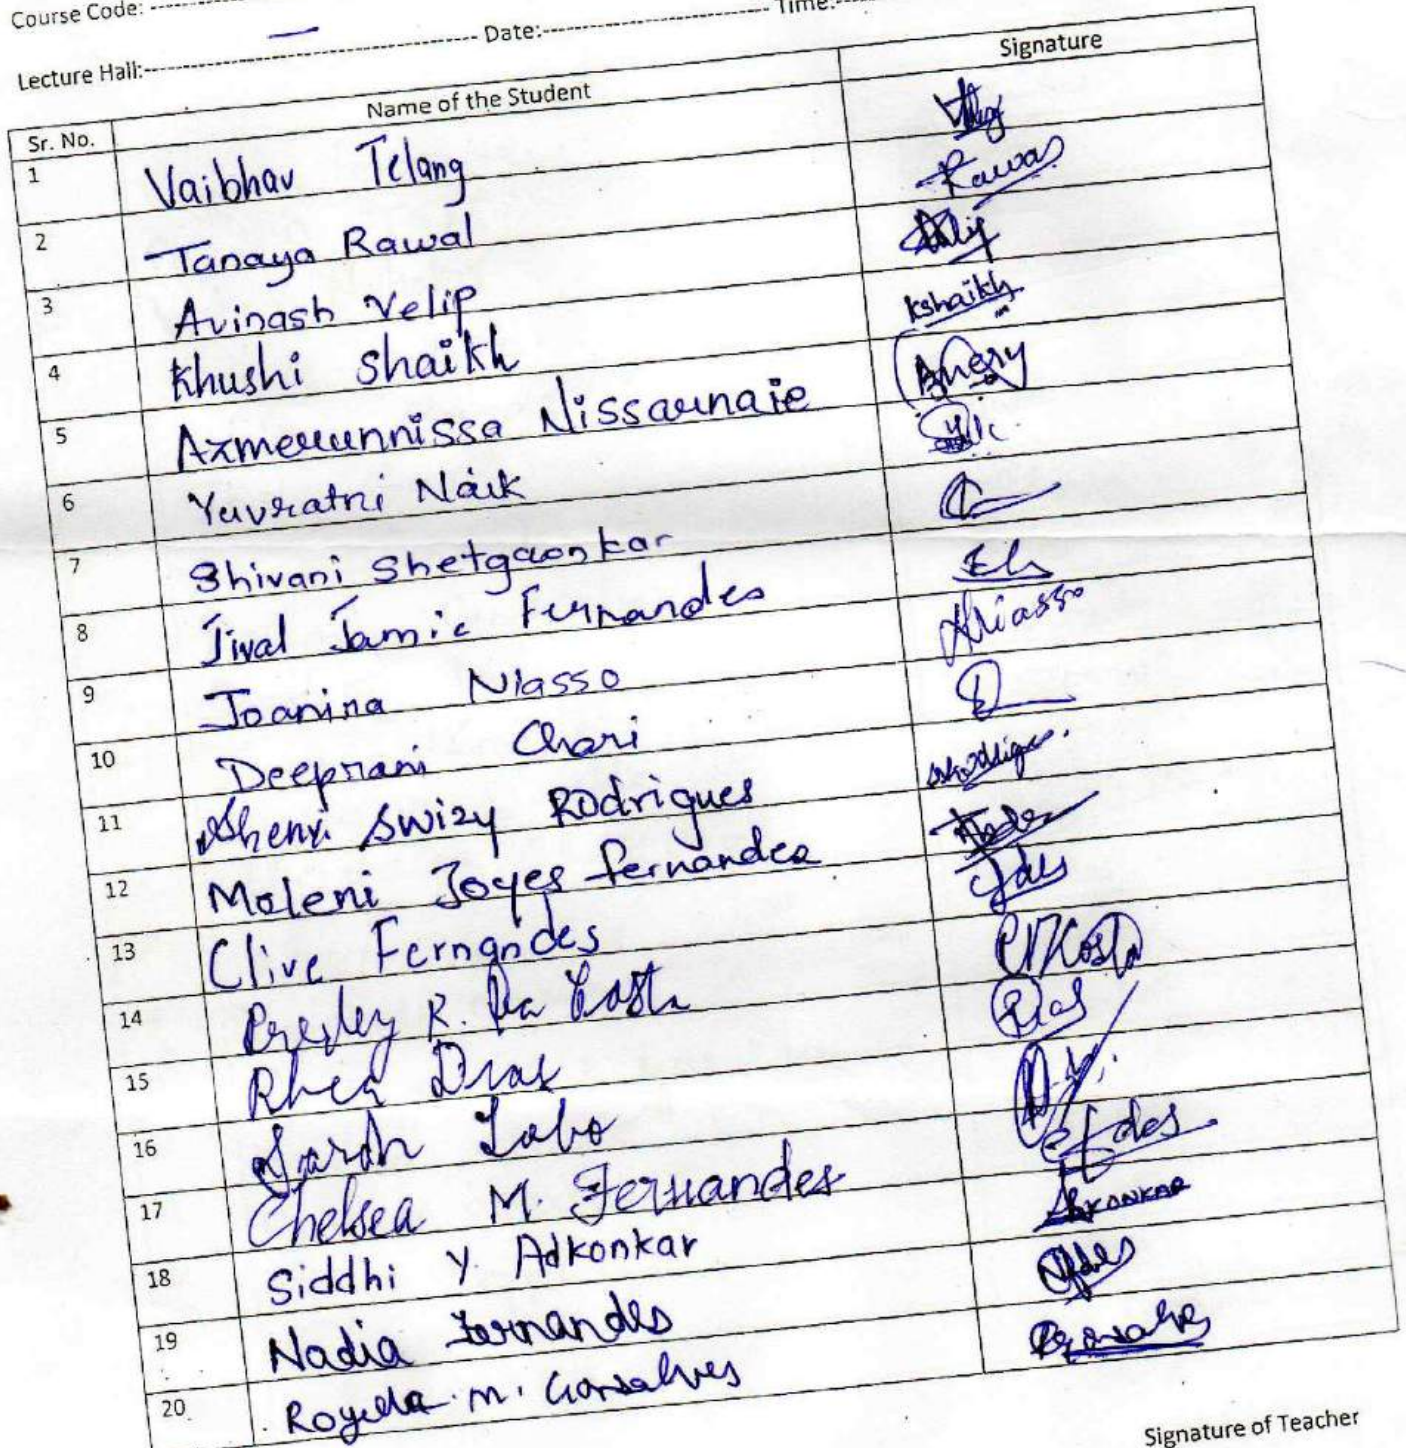 Course Code:
Lecture Hall: Date: Time:
Sr. No. Name of the Student Signature
1 Vaibhav Telang
2 Tanaya Rawal Rawal
3 Avinash Velip
4 Khushi Shaikh Kshaikh
5 Azmerunnissa Nissarnaie
6 Yuvratni Naik
7 Shivani Shetgaonkar
8 Jival Jamie Fernandes
9 Joanina Niasso Niasso
10 Deeprani Chari
11 Shenxi Swizy Rodrigues
12 Meleni Joyes Fernandes
13 Clive Fernandes
14 Presley R. Da Costa
15 Rhea Dias
16 Sarah Lobo
17 Chelsea M. Fernandes
18 Siddhi Y. Adkonkar
19 Nadia Fernandes
20 M. Gonsalves
Signature of Teacher